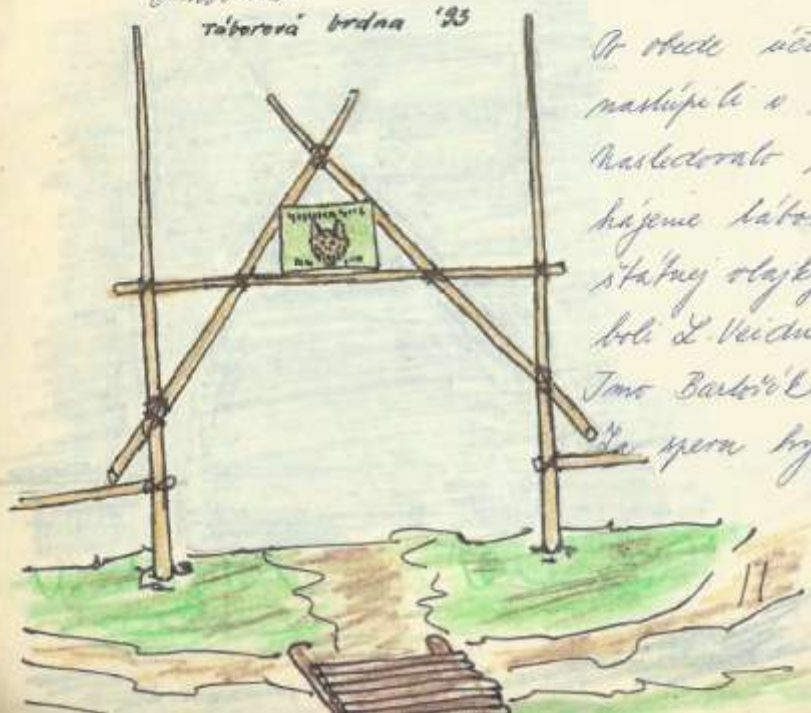 Táborová brdna '93
Po obede úč
nastúpili v
Nasledovalo
hájeme tábo
štátnej vlajk
boli L. Veidn
Imo Bartošík
Za spevu hy